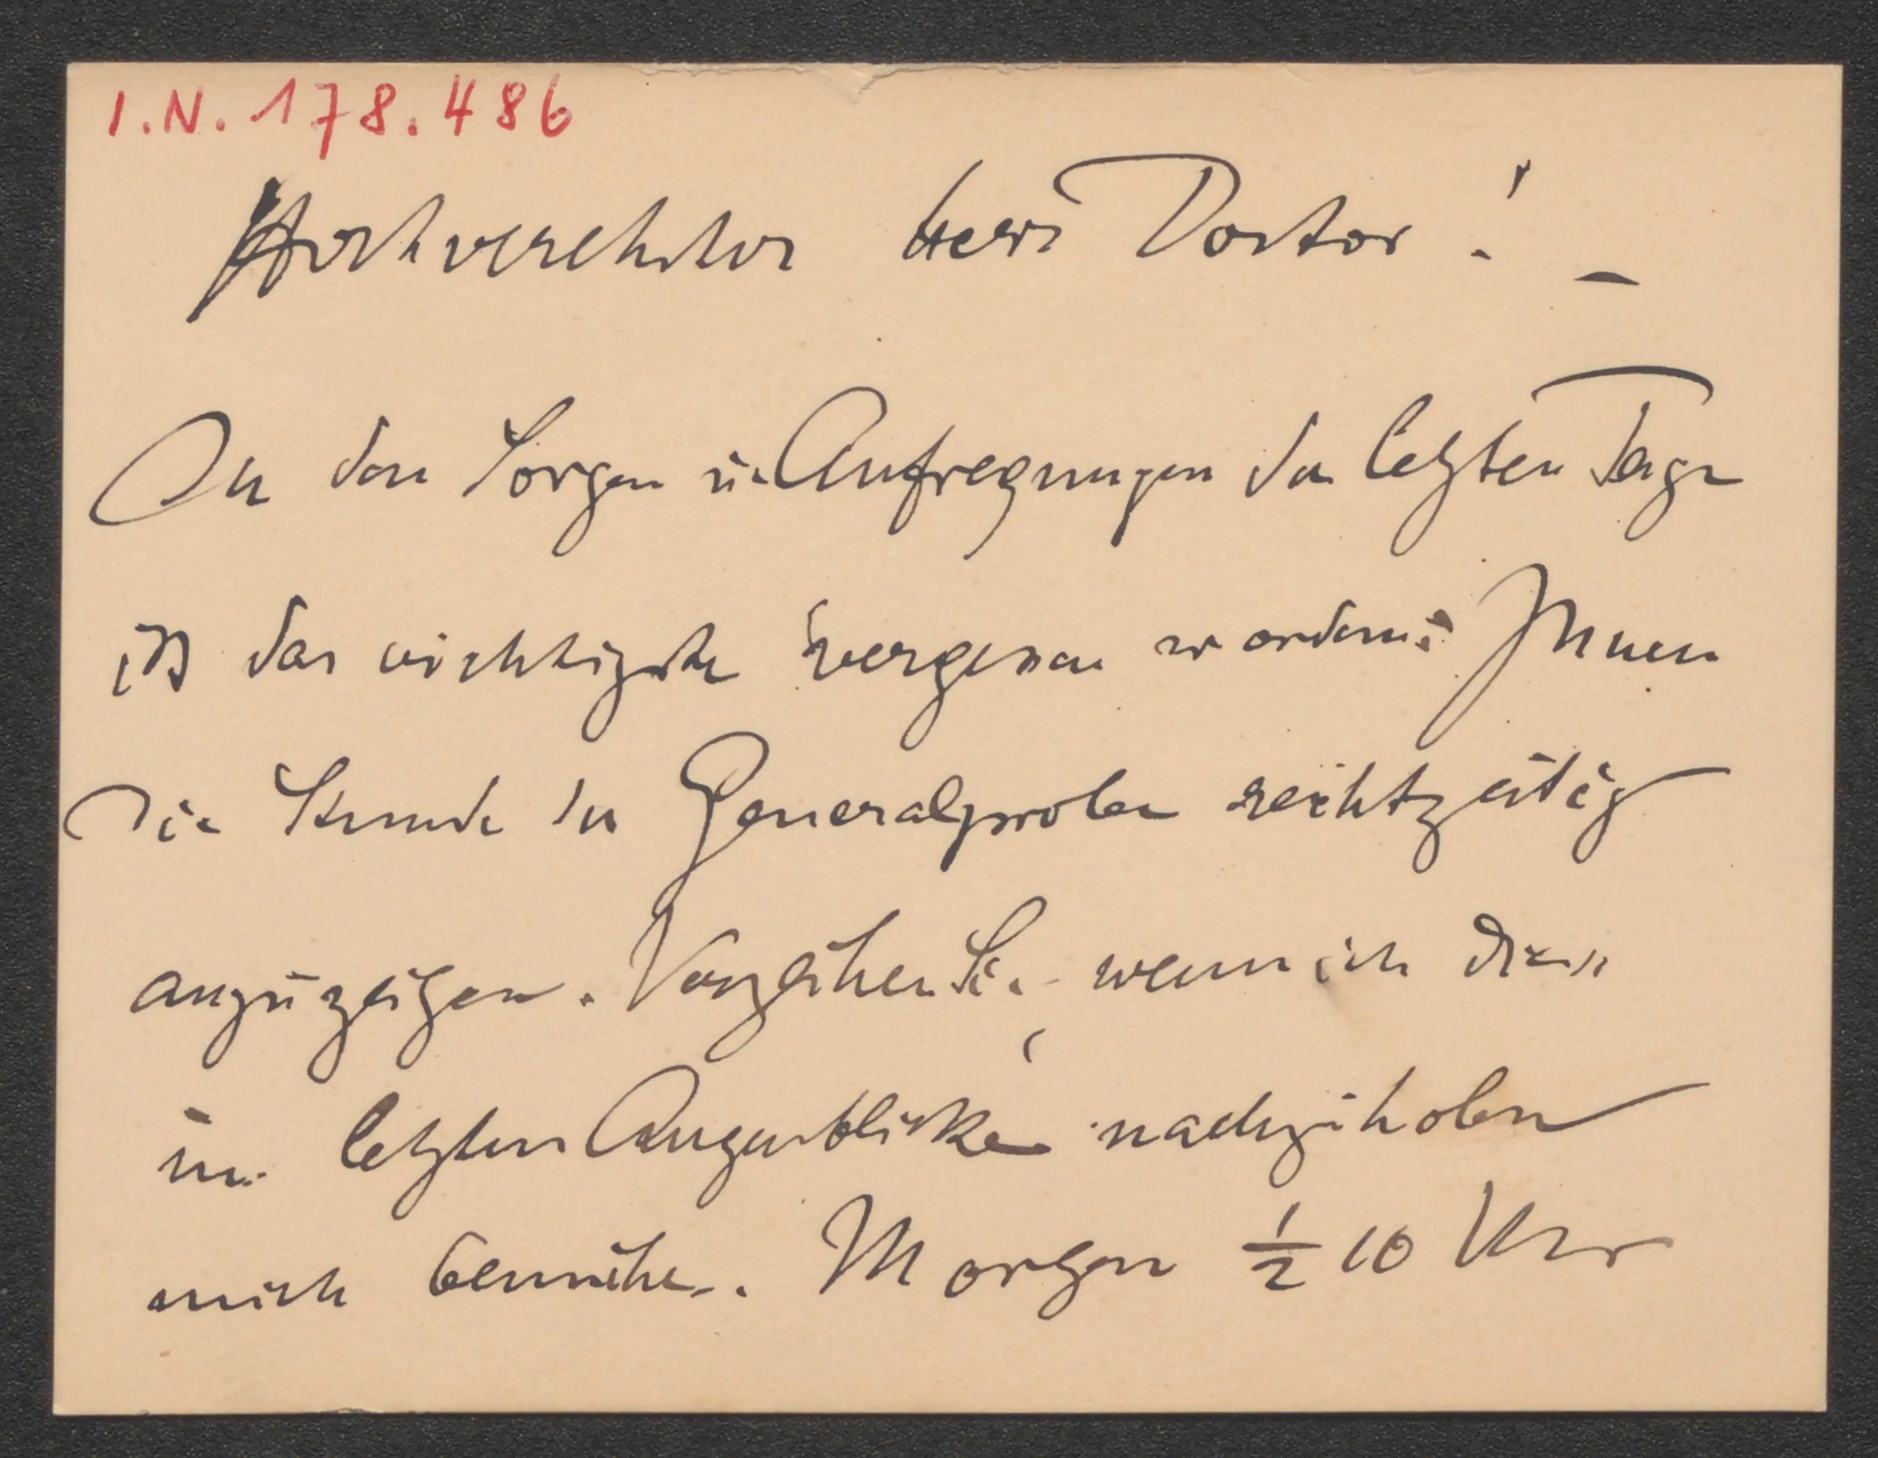 I.N. 178.486
Hochverehrter Herr Doctor! –
In den Sorgen u. Aufregungen der letzten Tage
ist das wichtigste vergessen worden: Ihnen
die Stunde der Generalprobe rechtzeitig
anzuzeigen. Verzeihen Sie, wenn ich dies
im letzten Augenblicke nachzuholen
mich bemühe. Morgen ½ 10 Uhr